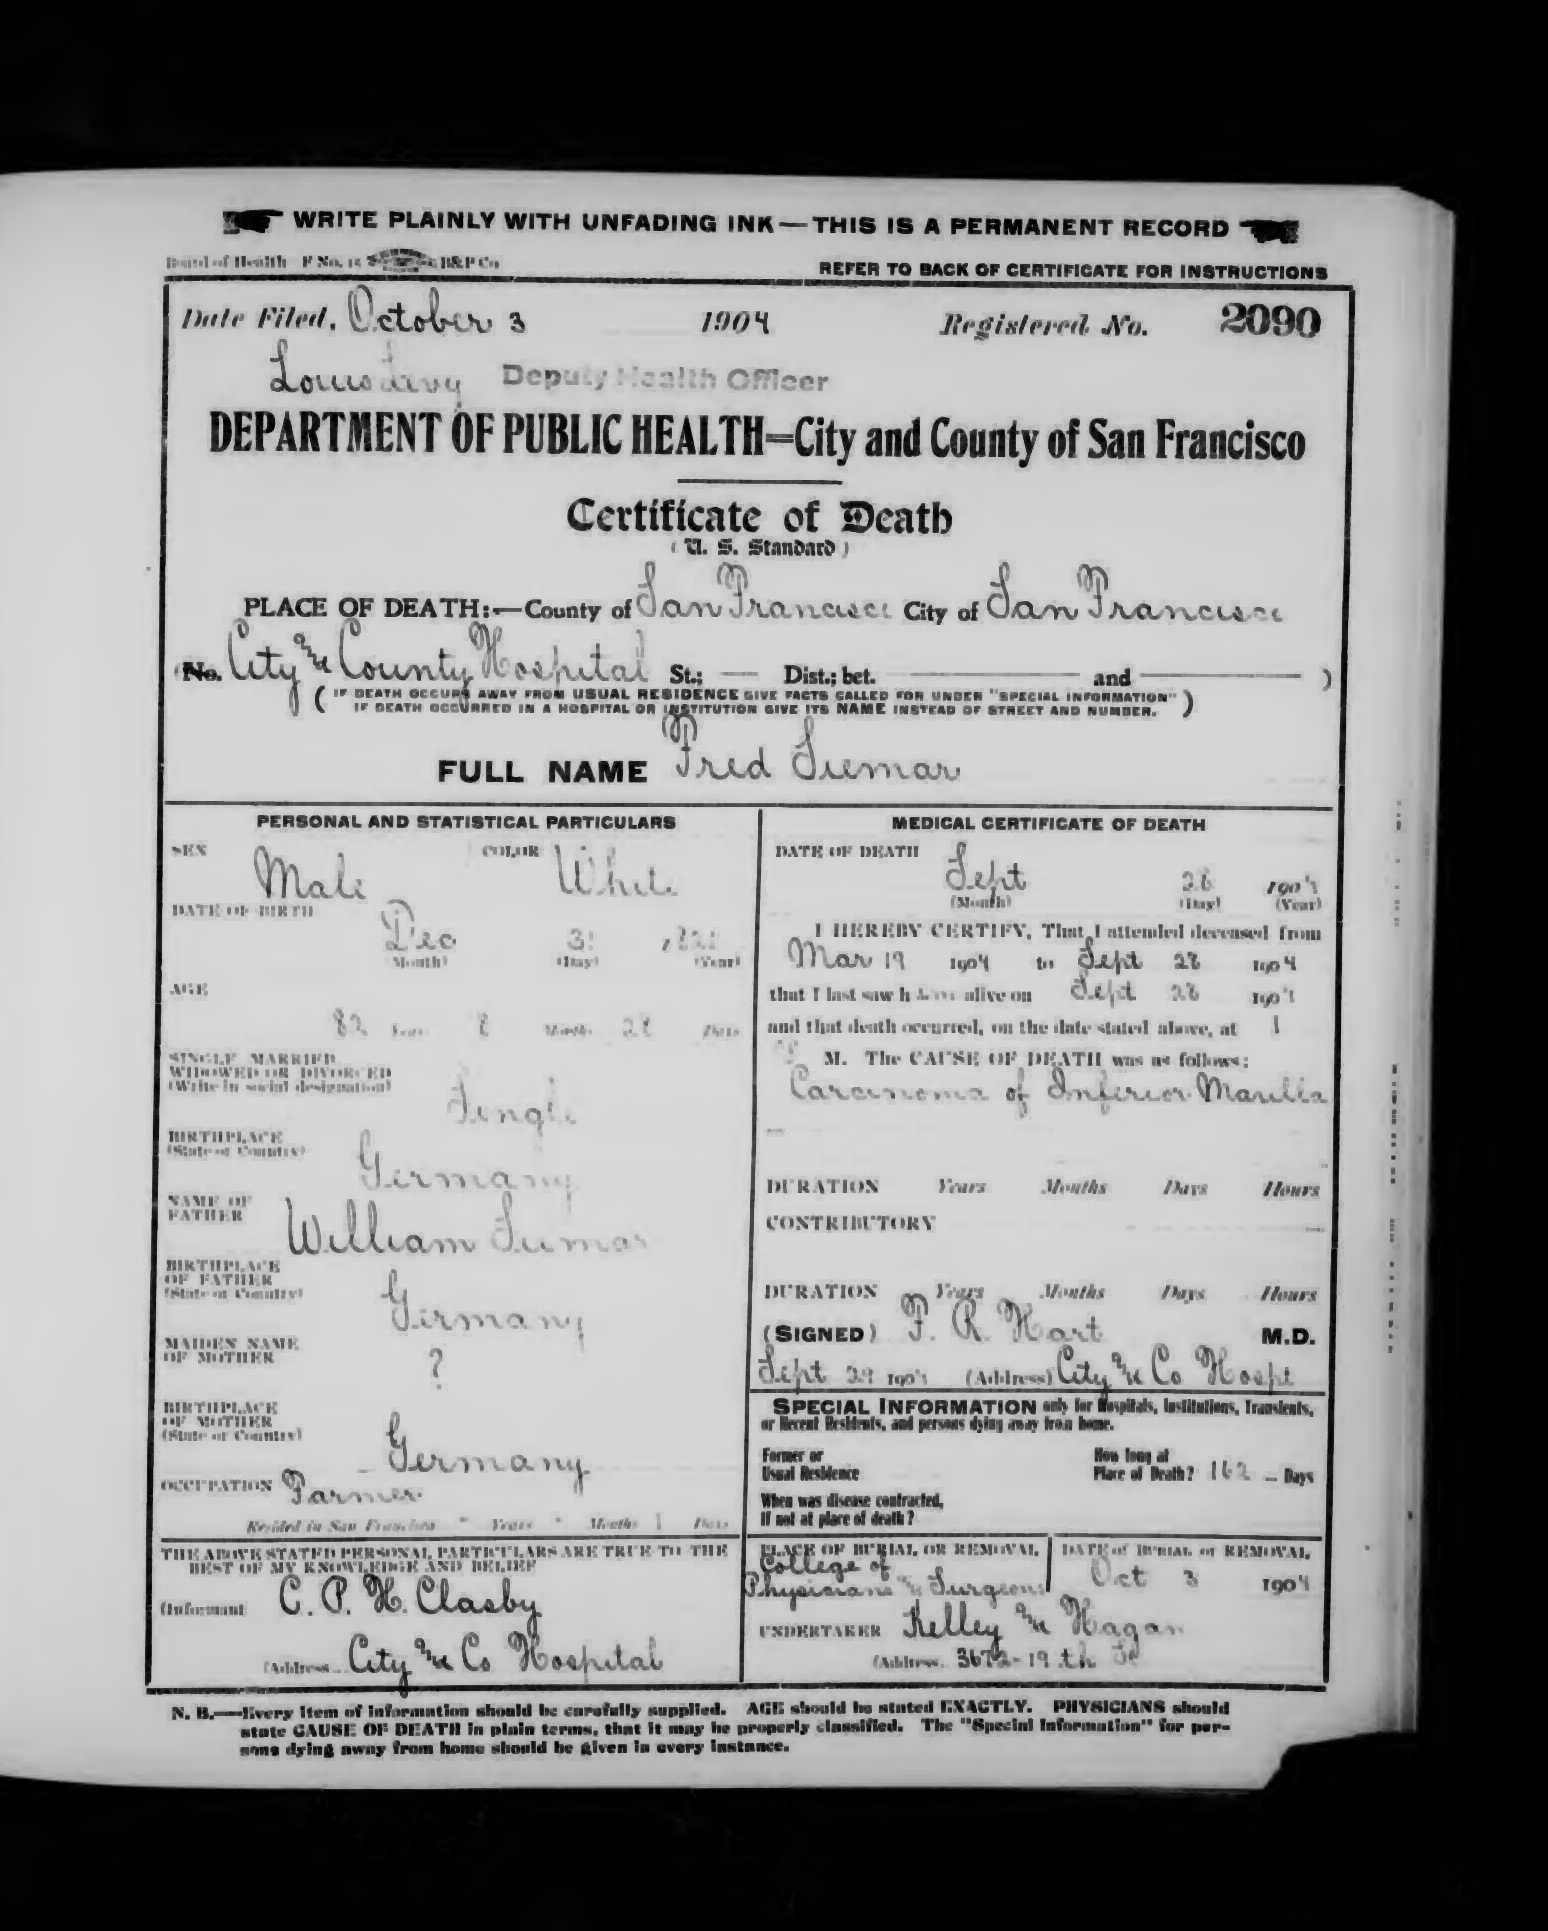 WRITE PLAINLY WITH UNFADING INK—THIS IS A PERMANENT RECORD
Board of Health F No. 15 B&P Co
REFER TO BACK OF CERTIFICATE FOR INSTRUCTIONS
Date Filed, October 3 1904 Registered No. 2090
Louis Levy Deputy Health Officer
DEPARTMENT OF PUBLIC HEALTH=City and County of San Francisco
Certificate of Death
(U. S. Standard)
PLACE OF DEATH:—County of San Francisco City of San Francisco
(No. City and County Hospital St.; — Dist.; bet. — and — )
(IF DEATH OCCURS AWAY FROM USUAL RESIDENCE GIVE FACTS CALLED FOR UNDER "SPECIAL INFORMATION"
IF DEATH OCCURRED IN A HOSPITAL OR INSTITUTION GIVE ITS NAME INSTEAD OF STREET AND NUMBER.)
FULL NAME Fred Siemar
PERSONAL AND STATISTICAL PARTICULARS
SEX Male COLOR White
DATE OF BIRTH
Dec 31 1821
(Month) (Day) (Year)
AGE
82 Years 8 Months 28 Days
SINGLE MARRIED
WIDOWED OR DIVORCED
(Write in social designation)
Single
BIRTHPLACE
(State or Country)
Germany
NAME OF
FATHER
William Siemar
BIRTHPLACE
OF FATHER
(State or Country)
Germany
MAIDEN NAME
OF MOTHER
?
BIRTHPLACE
OF MOTHER
(State or Country)
Germany
OCCUPATION Farmer
Resided in San Francisco Years Months Days
THE ABOVE STATED PERSONAL PARTICULARS ARE TRUE TO THE
BEST OF MY KNOWLEDGE AND BELIEF
(Informant C. P. H. Clasby
(Address City and Co Hospital
MEDICAL CERTIFICATE OF DEATH
DATE OF DEATH
Sept 28 1904
(Month) (Day) (Year)
I HEREBY CERTIFY, That I attended deceased from
Mar 19 1904 to Sept 28 1904
that I last saw h im alive on Sept 28 1904
and that death occurred, on the date stated above, at 1
M. The CAUSE OF DEATH was as follows:
Carcinoma of Inferior Maxilla
DURATION Years Months Days Hours
CONTRIBUTORY
DURATION Years Months Days Hours
(SIGNED) F. R. Hart M.D.
Sept 29 1904 (Address) City and Co Hospt
SPECIAL INFORMATION only for Hospitals, Institutions, Transients,
or Recent Residents, and persons dying away from home.
Former or
Usual Residence
How long at
Place of Death? 162 Days
When was disease contracted,
If not at place of death?
PLACE OF BURIAL OR REMOVAL
College of
Physicians and Surgeons
DATE of BURIAL or REMOVAL
Oct 3 1904
UNDERTAKER Kelley and Hagan
(Address 3672-19th St
N. B.—Every item of information should be carefully supplied. AGE should be stated EXACTLY. PHYSICIANS should
state CAUSE OF DEATH in plain terms, that it may be properly classified. The "Special Information" for per-
sons dying away from home should be given in every instance.